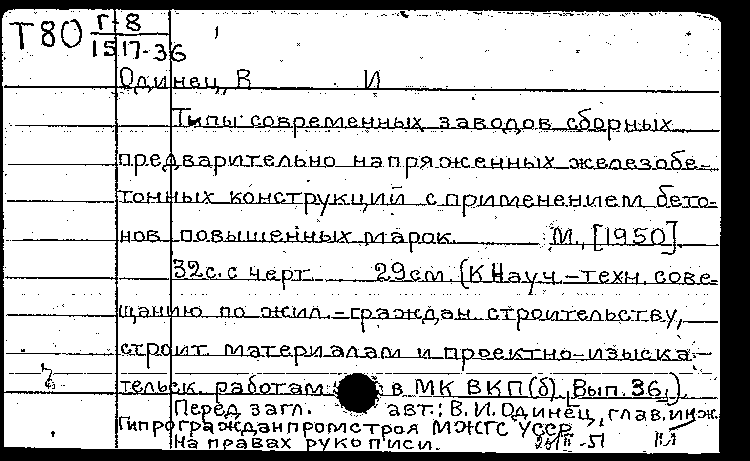 Т80 Г-8
1517-36
Одинец, В И
Типы современных заводов сборных
предварительно напряженных железобе-
тонных конструкций с применением бето-
нов повышенных марок. М., [1950].
32с. с черт. 29см. (К Науч.-техн. сове-
щанию по жил.-граждан. строительству,
строит. материалам и проектно-изыска-
тельск. работам в МК ВКП(б). Вып. 36.).
Перед загл. авт.: В.И. Одинец, глав. инж.
Гипрогражданпромстроя МЖГС УССР.
На правах рукописи.